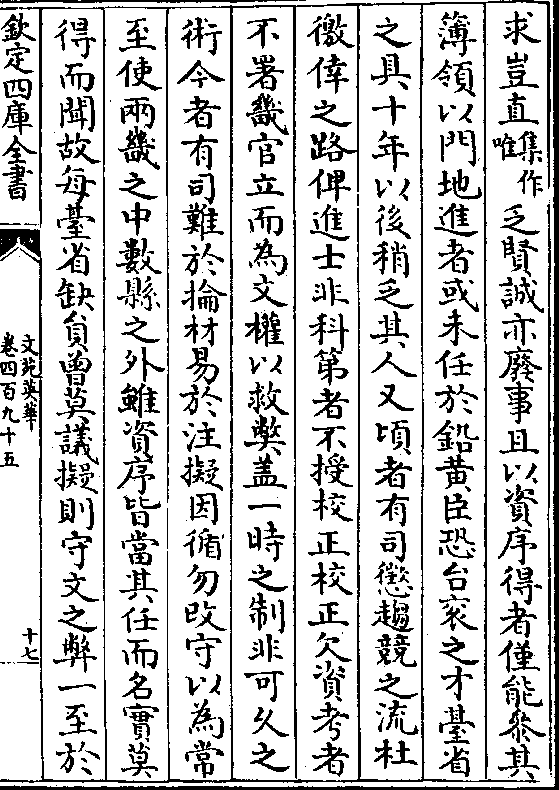 求豈直集作唯乏賢誠亦廢事且以資序得者僅能叅其
簿領以門地進者或未任於鉛黄臣恐台衮之才臺省
之具十年以後稍乏其人又頃者有司懲趨競之流杜
徼倖之路俾進士非科第者不授校正校正欠資考者
不署畿官立而為文權以救弊盖一時之制非可久之
術今者有司難於掄材易於注擬因循勿改守以為常
至使兩畿之中數縣之外雖資序皆當其任而名實莫
得而聞故每臺省缺負曾莫議擬則守文之弊一至於
欽定四庫全書
文苑英華
卷四百九十五
十七